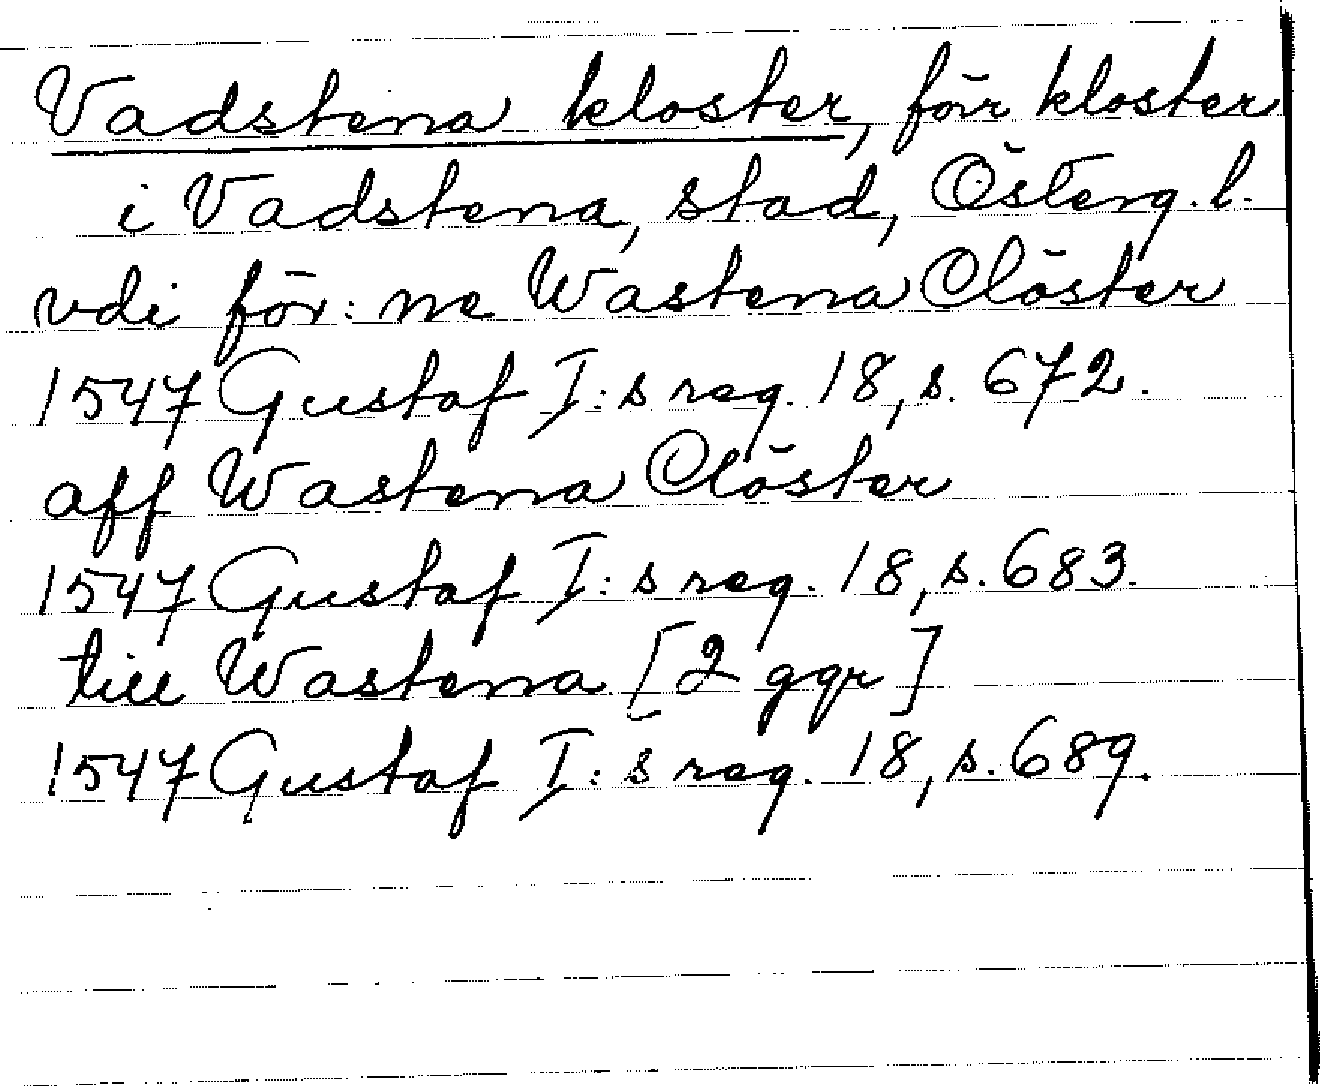 Vadstena kloster, förr kloster
i Vadstena, stad, Österg. l.
vdi för: ne Wastena Clöster
1547 Gustaf I: s reg. 18, s. 672.
aff Wastena Clöster
1547 Gustaf I: s reg. 18, s. 683.
till Wastena [2 ggr]
1547 Gustaf I: s reg. 18, s. 689.